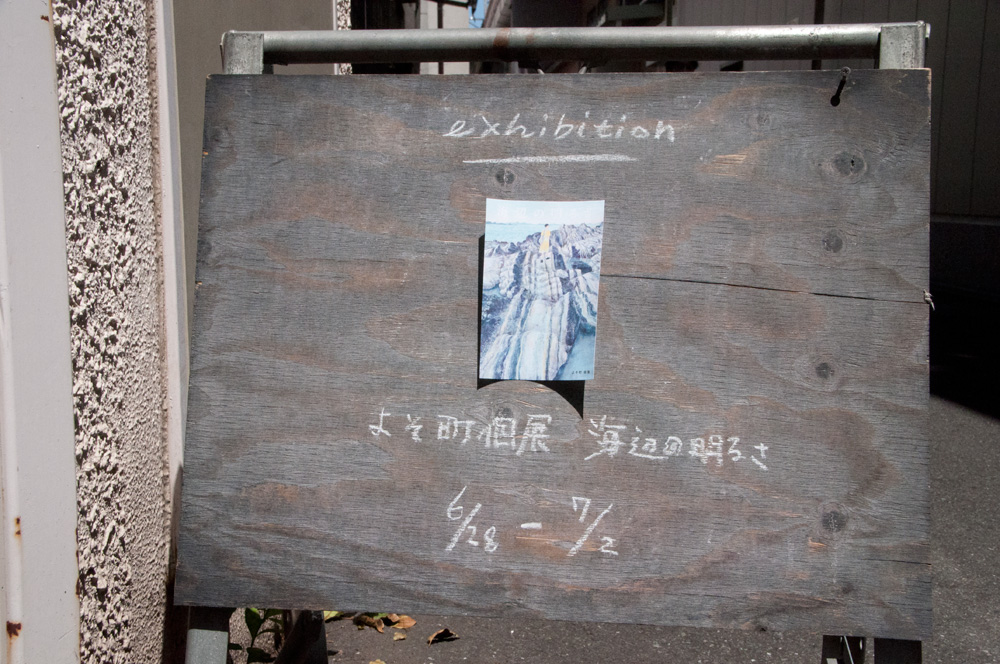 exhibition
よそ町個展 海辺の明るさ
6/28 - 7/2